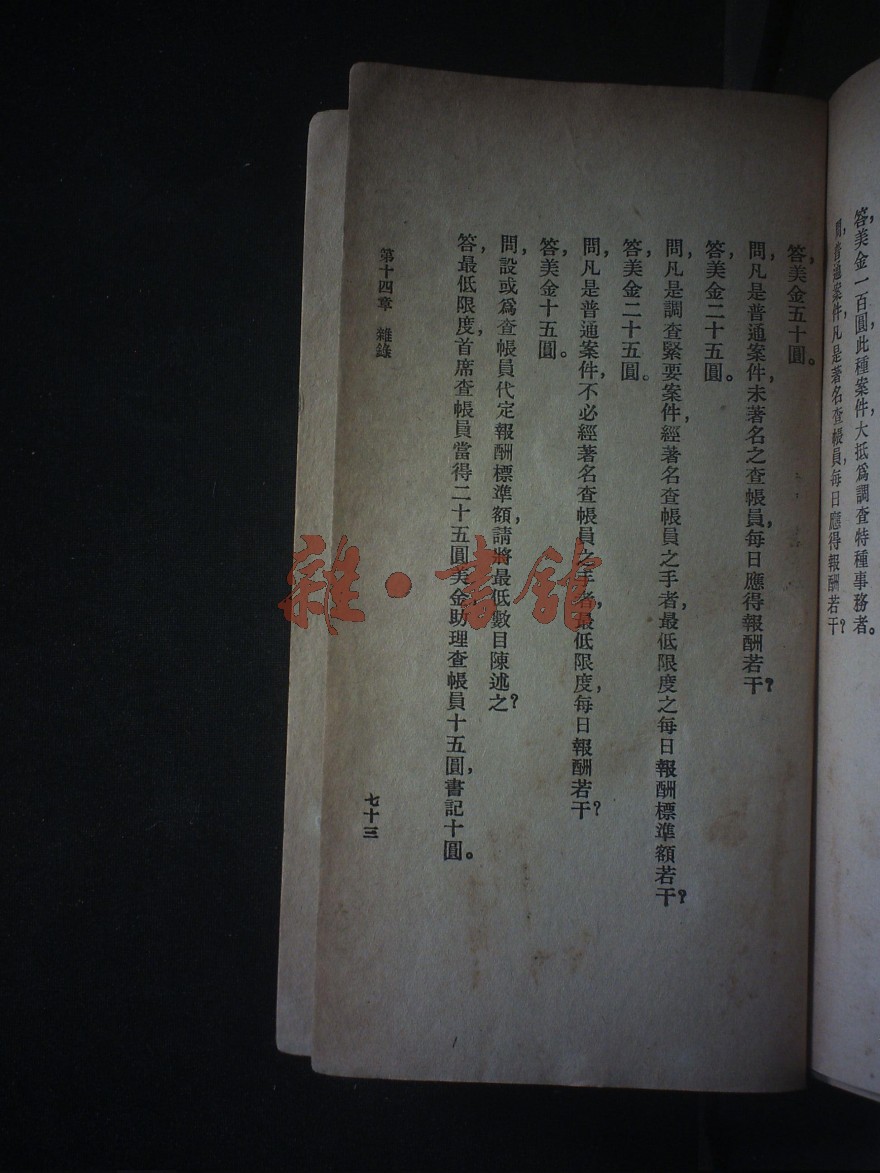 答,美金一百圓,此種案件,大抵爲調查特種事務者。
問,普通案件,凡是著名查帳員,每日應得報酬若干?
答,美金五十圓。
問,凡是普通案件,未著名之查帳員,每日應得報酬若干?
答,美金二十五圓。
問,凡是調查緊要案件,經著名查帳員之手者,最低限度之每日報酬標準額若干?
答,美金二十五圓。
問,凡是普通案件,不必經著名查帳員之手者,最低限度,每日報酬若干?
答,美金十五圓。
問,設或爲查帳員代定報酬標準額,請將最低數目陳述之?
答,最低限度,首席查帳員當得二十五圓美金助理查帳員十五圓,書記十圓。
第十四章 雜錄
七十三
雜·書館